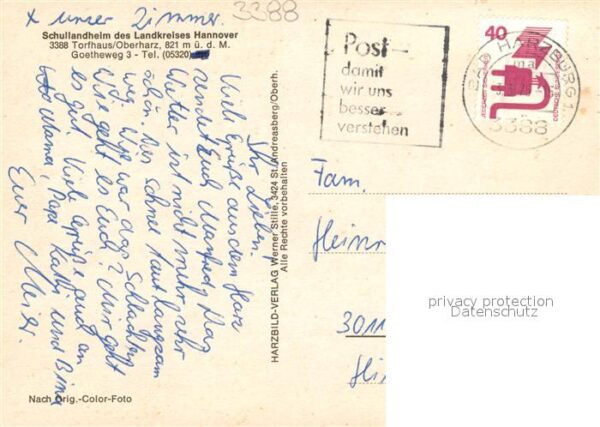 x unser Zimmer.
3388
Schullandheim des Landkreises Hannover
3388 Torfhaus/Oberharz, 821 m ü. d. M.
Goetheweg 3 - Tel. (05320)
Ihr Lieben,
Viele Grüße aus dem Harz
sendet Euch
Wetter ist nicht mehr sehr
schön. Der Schnee taut langsam
weg. Wie war das Schlachten
Wie geht es Euch? Mir geht
es gut. Viele Grüße auch an
Mama, Papa, Katja und
Euer
Nach Orig.-Color-Foto
HARZBILD-VERLAG Werner Stille, 3424 St. Andreasberg/Oberh.
Alle Rechte vorbehalten
Post -
damit
wir uns
besser
verstehen
40
HARZBURG 1
3388
Fam.
Heinr
3011
privacy protection
Datenschutz